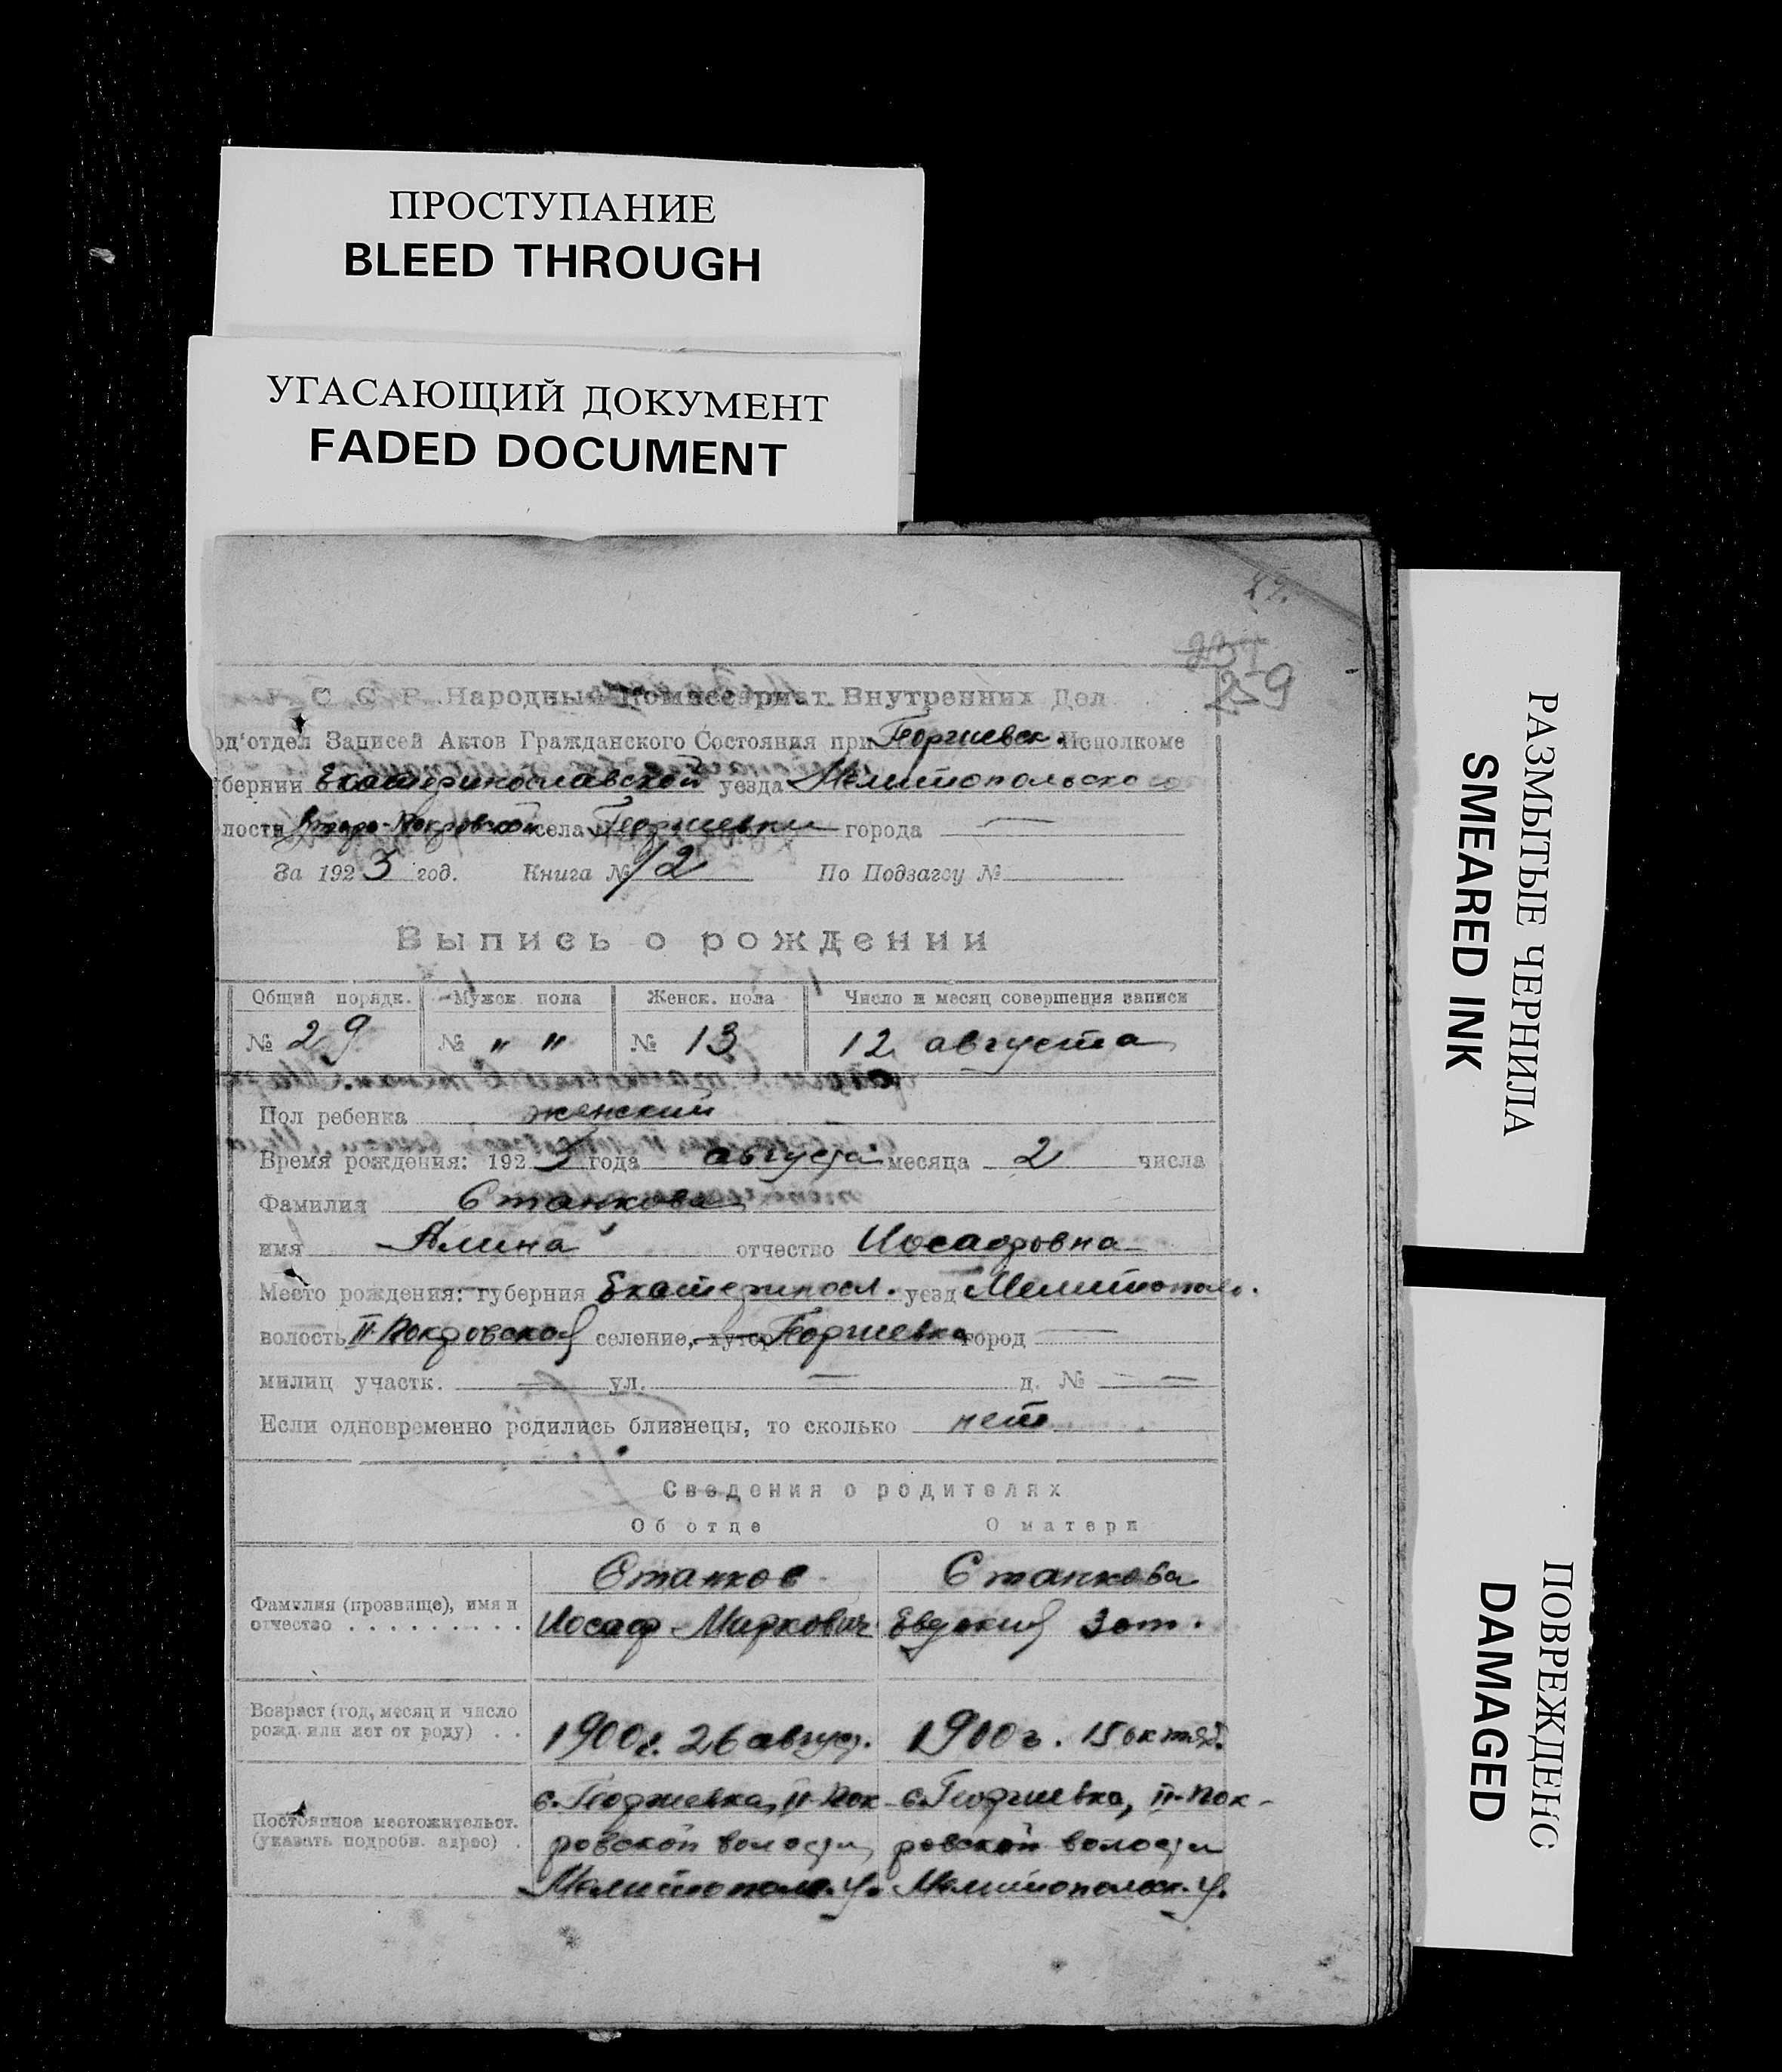 ПРОСТУПАНИЕ
BLEED THROUGH
УГАСАЮЩИЙ ДОКУМЕНТ
FADED DOCUMENT
259
С. С. Р. Народный Комиссариат Внутренних Дел
од'отдел Записей Актов Гражданского Состояния при Георгиевск. Исполкоме
бернии Екатеринославской уезда Мелитопольского
лости Второ-Покровской села Георгиевки города —
За 1923 год. Книга № 12 По Подзагсу №
Выпись о рождении
Общий порядк. Мужск. пола Женск. пола Число и месяц совершения записи
№ 29 № " " № 13 12 августа
Пол ребенка женский
Время рождения: 1923 года августа месяца 2 числа
Фамилия Станкова
имя Алина отчество Иосафовна
Место рождения: губерния Екатериносл. уезд Мелитополь.
волость II Покровская селение, хутор Георгиевка город —
милиц участк. — ул. — д. № —
Если одновременно родились близнецы, то сколько нет
Сведения о родителях
Об отце О матери
Фамилия (прозвище), имя и отчество . . . . . . . . .
Станков
Иосаф Маркович
Станкова
Евдокия Зот.
Возраст (год, месяц и число рожд. или лет от роду) . .
1900 г. 26 август.
1900 г. 15 октяб.
Постоянное местожительст. (указать подробн. адрес) .
с. Георгиевка, II-Пок
ровской волости
Мелитополь. у.
с. Георгиевка, II-Пок-
ровской волости
Мелитопольск. у.
РАЗМЫТЫЕ ЧЕРНИЛА
SMEARED INK
ПОВРЕЖДЕНО
DAMAGED